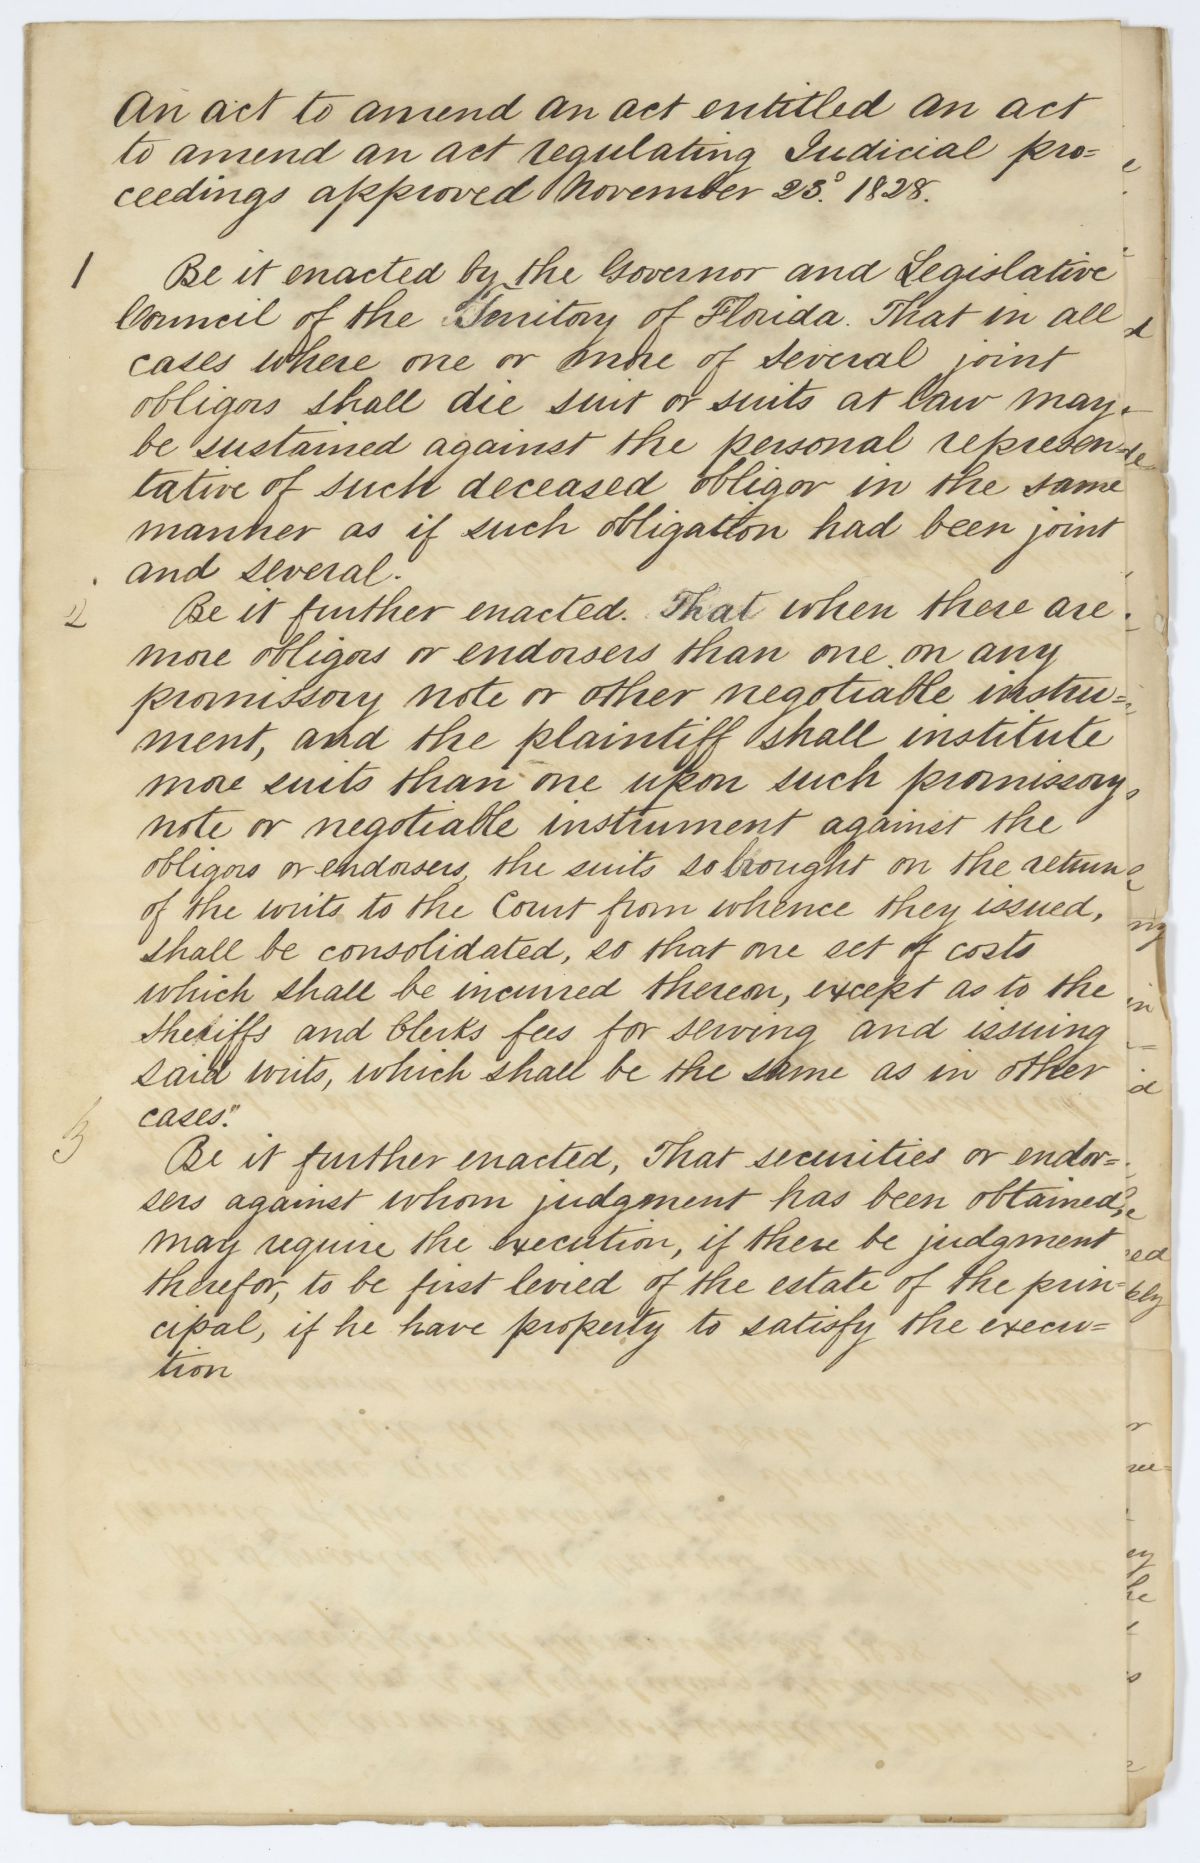 An act to amend an act entitled an act
to amend an act regulating Judicial pro=
ceedings approved November 23.° 1828.
1 Be it enacted by the Governor and Legislative
Council of the Territory of Florida. That in all
cases where one or more of several joint
obligors shall die suit or suits at law may
be sustained against the personal represen=
tative of such deceased obligor in the same
manner as if such obligation had been joint
and several.
2 Be it further enacted. That when there are
more obligors or endorsers than one on any
promissory note or other negotiable instru=
ment, and the plaintiff shall institute
more suits than one upon such promissory
note or negotiable instrument against the
obligors or endorsers, the suits so brought on the return
of the writs to the Court from whence they issued,
shall be consolidated, so that one set of costs
which shall be incurred thereon, except as to the
sheriffs and Clerks fees for serving and issuing
said writs, which shall be the same as in other
cases."
3 Be it further enacted, That securities or endor=
sers against whom judgment has been obtained,
may require the execution, if there be judgment
therefor, to be first levied of the estate of the prin=
cipal, if he have property to satisfy the execu=
tion